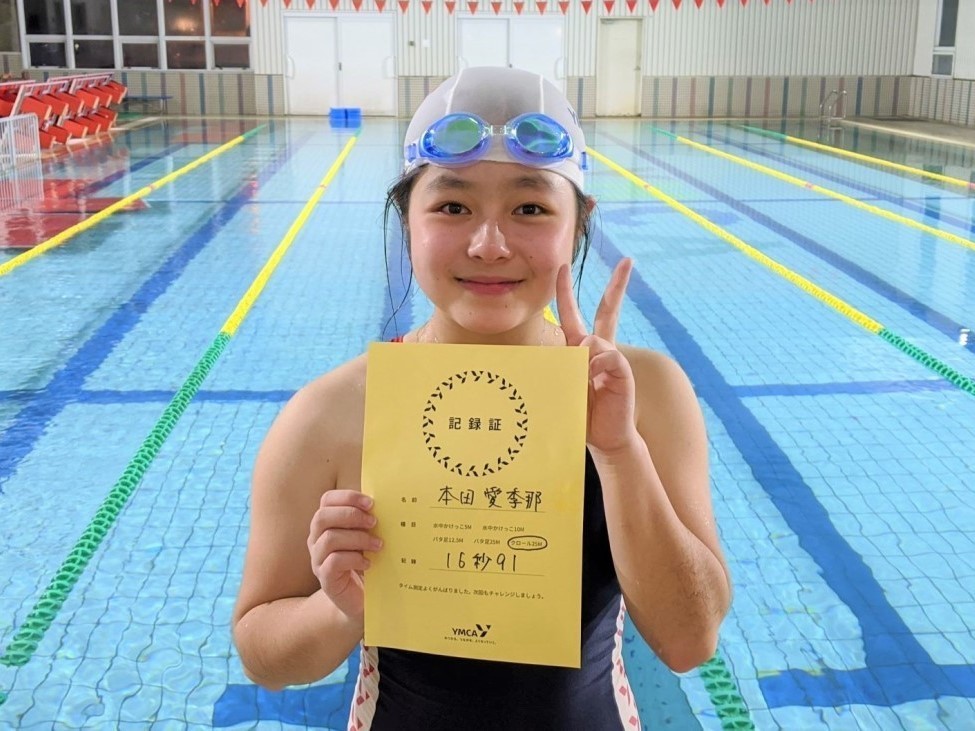 記録証
名前 本田 愛季那
種目 水中かけっこ5M 水中かけっこ10M
バタ足12.5M バタ足25M クロール25M
記録 16秒91
タイム測定よくがんばりました。次回もチャレンジしましょう。
YMCA